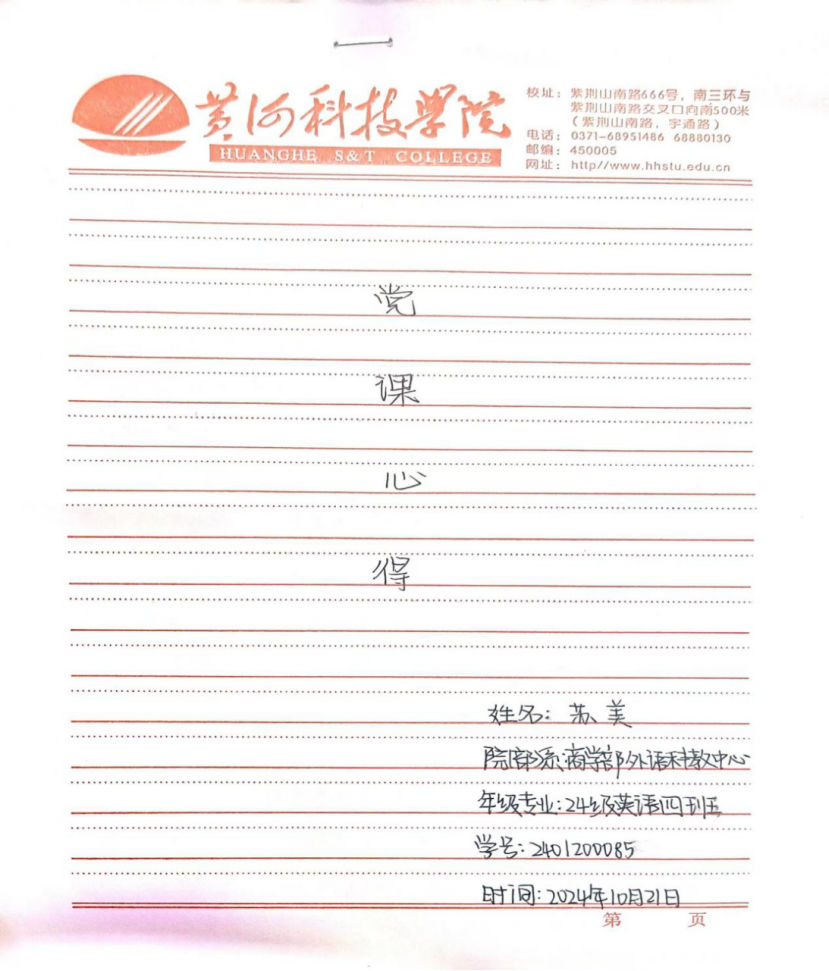 黄河科技学院
HUANGHE S&T COLLEGE
校址：紫荆山南路666号，南三环与
紫荆山南路交叉口向南500米
（紫荆山南路，宇通路）
电话：0371-68951486 68880130
邮编：450005
网址：http//www.hhstu.edu.cn
党
课
心
得
姓名：苏美
院部系：商学部外语科教中心
年级专业：24级英语四班
学号：2401200085
时间：2024年10月21日
第 页